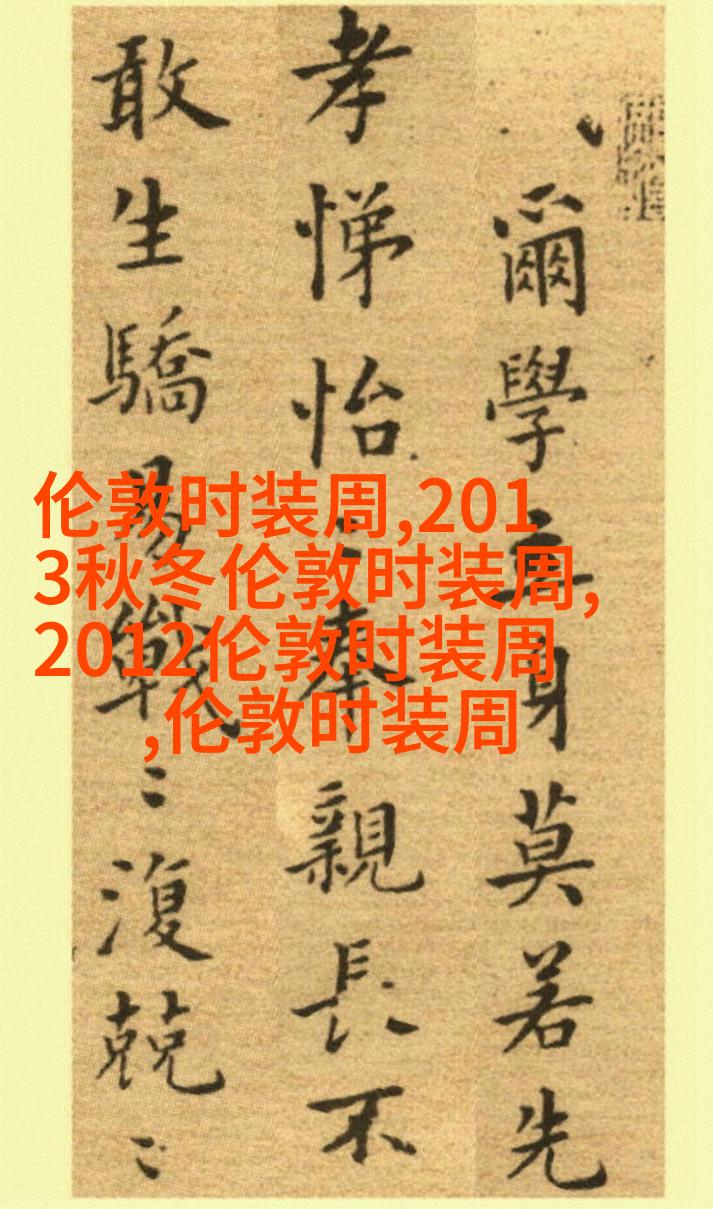 爾學立身莫若先
孝悌怡〻奉親長不
敢生驕易戰〻復兢〻
伦敦时装周,201
3秋冬伦敦时装周,
2012伦敦时装周
,伦敦时装周